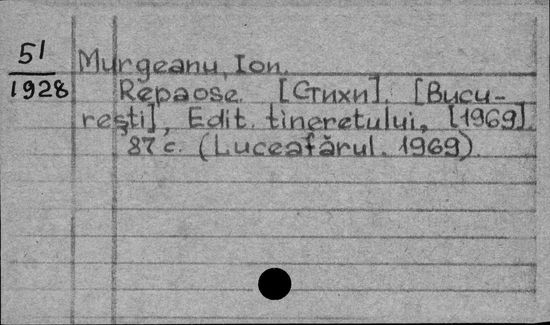 51
1928
Murgeanu, Ion.
Repaose. [Стихи]. [Bucu-
reşti], Edit. tineretului, [1969].
87 с. (Luceafărul. 1969).